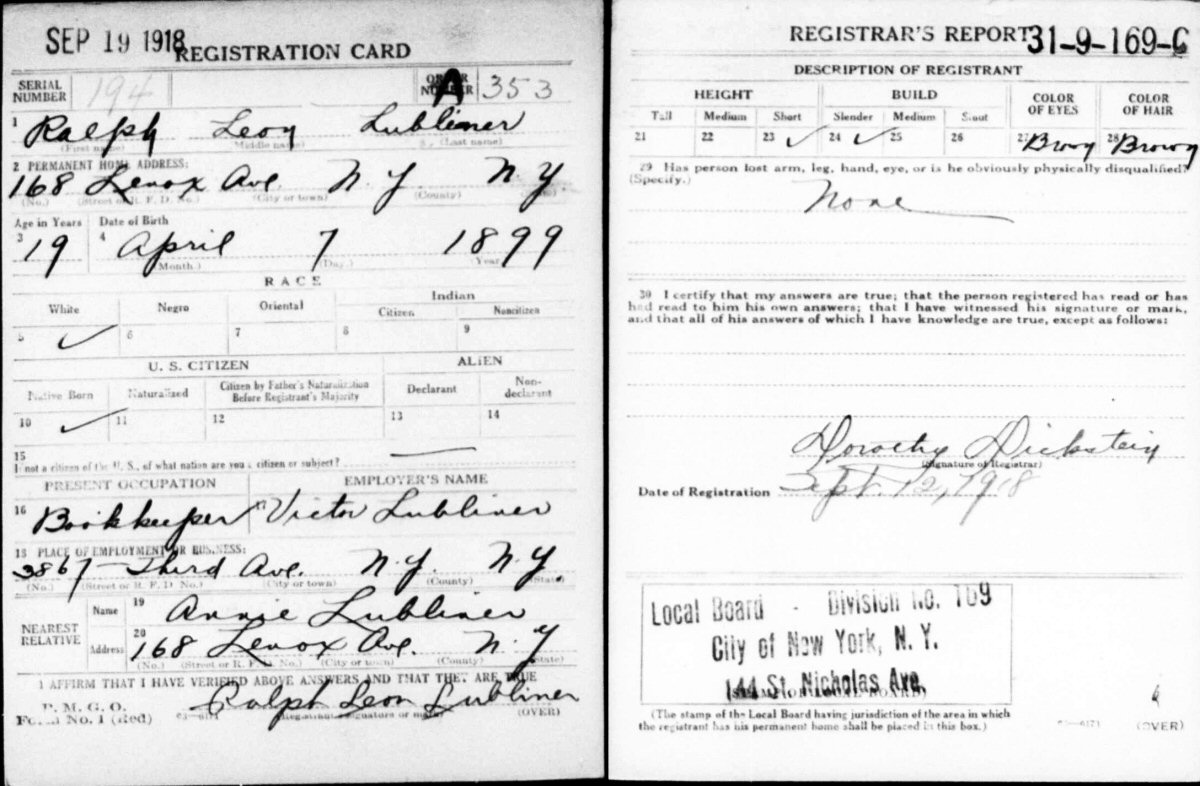 SEP 19 1918
REGISTRATION CARD
SERIAL NUMBER 194 ORDER NUMBER A 353
1 Ralph Leon Lubliner
(First name) (Middle name) (Last name)
2 PERMANENT HOME ADDRESS:
168 Lenox Ave. N.Y. N.Y.
(No.) (Street or R. F. D. No.) (City or town) (County) (State)
Age in Years Date of Birth
3 19 4 April 7 1899
(Month.) (Day.) (Year.)
RACE
White Negro Oriental Indian
Citizen Noncitizen
5 ✓ 6 7 8 9
U. S. CITIZEN ALIEN
Native Born Naturalized Citizen by Father's Naturalization Before Registrant's Majority Declarant Non-declarant
10 ✓ 11 12 13 14
15
If not a citizen of the U. S., of what nation are you a citizen or subject? —
PRESENT OCCUPATION EMPLOYER'S NAME
16 Bookkeeper 17 Victor Lubliner
18 PLACE OF EMPLOYMENT OR BUSINESS:
3867 Third Ave. N.Y. N.Y.
(No.) (Street or R. F. D. No.) (City or town) (County) (State)
NEAREST RELATIVE Name 19 Annie Lubliner
Address 20 168 Lenox Ave. N.Y
(No.) (Street or R. F. D. No.) (City or town) (County) (State)
I AFFIRM THAT I HAVE VERIFIED ABOVE ANSWERS AND THAT THEY ARE TRUE
P. M. G. O.
Form No. 1 (Red) 03—6171 Ralph Leon Lubliner
(Registrant's signature or mark) (OVER)
REGISTRAR'S REPORT 31-9-169-C
DESCRIPTION OF REGISTRANT
HEIGHT BUILD COLOR OF EYES COLOR OF HAIR
Tall Medium Short Slender Medium Stout
21 22 23 ✓ 24 ✓ 25 26 27 Brown 28 Brown
29 Has person lost arm, leg, hand, eye, or is he obviously physically disqualified?
(Specify.)
None
30 I certify that my answers are true; that the person registered has read or has
had read to him his own answers; that I have witnessed his signature or mark,
and that all of his answers of which I have knowledge are true, except as follows:
Dorothy Dickstein
(Signature of Registrar)
Date of Registration Sept. 12, 1918
Local Board - Division No. 169
City of New York, N. Y.
144 St. Nicholas Ave.
(STAMP OF LOCAL BOARD)
(The stamp of the Local Board having jurisdiction of the area in which
the registrant has his permanent home shall be placed in this box.)
03—6171 (OVER)